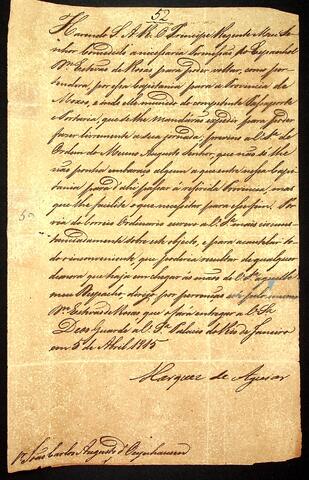 52
Havendo S. A. R. O Principe Regente Meu Se-
nhor Concedido a necessaria Permissão ao Espanhol
Dn Estevão de Rosas para poder voltar, como per-
tendera, por essa Capitania para a Provincia de
Moxos, e indo elle munido do competente Passaporte
e Portaria, que se lhe mandárão expedir para poder
fazer livremente a sua jornada, previno a V. Sa de
Ordem do Mesmo Augusto Senhor, que não se lhe
não ponha embaraço algum a que entre nessa Capi-
tania para d'ahi passar á referida Provincia, mas
que lhe facilite o que necessitar para esse fim. Por
via do Correio Ordinario escrevo a V. Sa mais circuns-
tanciadamente sobre este objecto, e para acautelar to-
do o inconveniente que poderia resultar de qualquer
demora que haja em chegar ás mãos de V. Sa aquelle
meu Despacho, dirijo por prevenção este pelo mesmo
Dn Estevão de Rosas que o fará entregar a V. Sa
Deos Guarde a V. Sa Palacio do Rio de Janeiro
em 5 de Abril 1815
Marquez de Aguiar
Sr João Carlos Augusto d'Oeynhausen